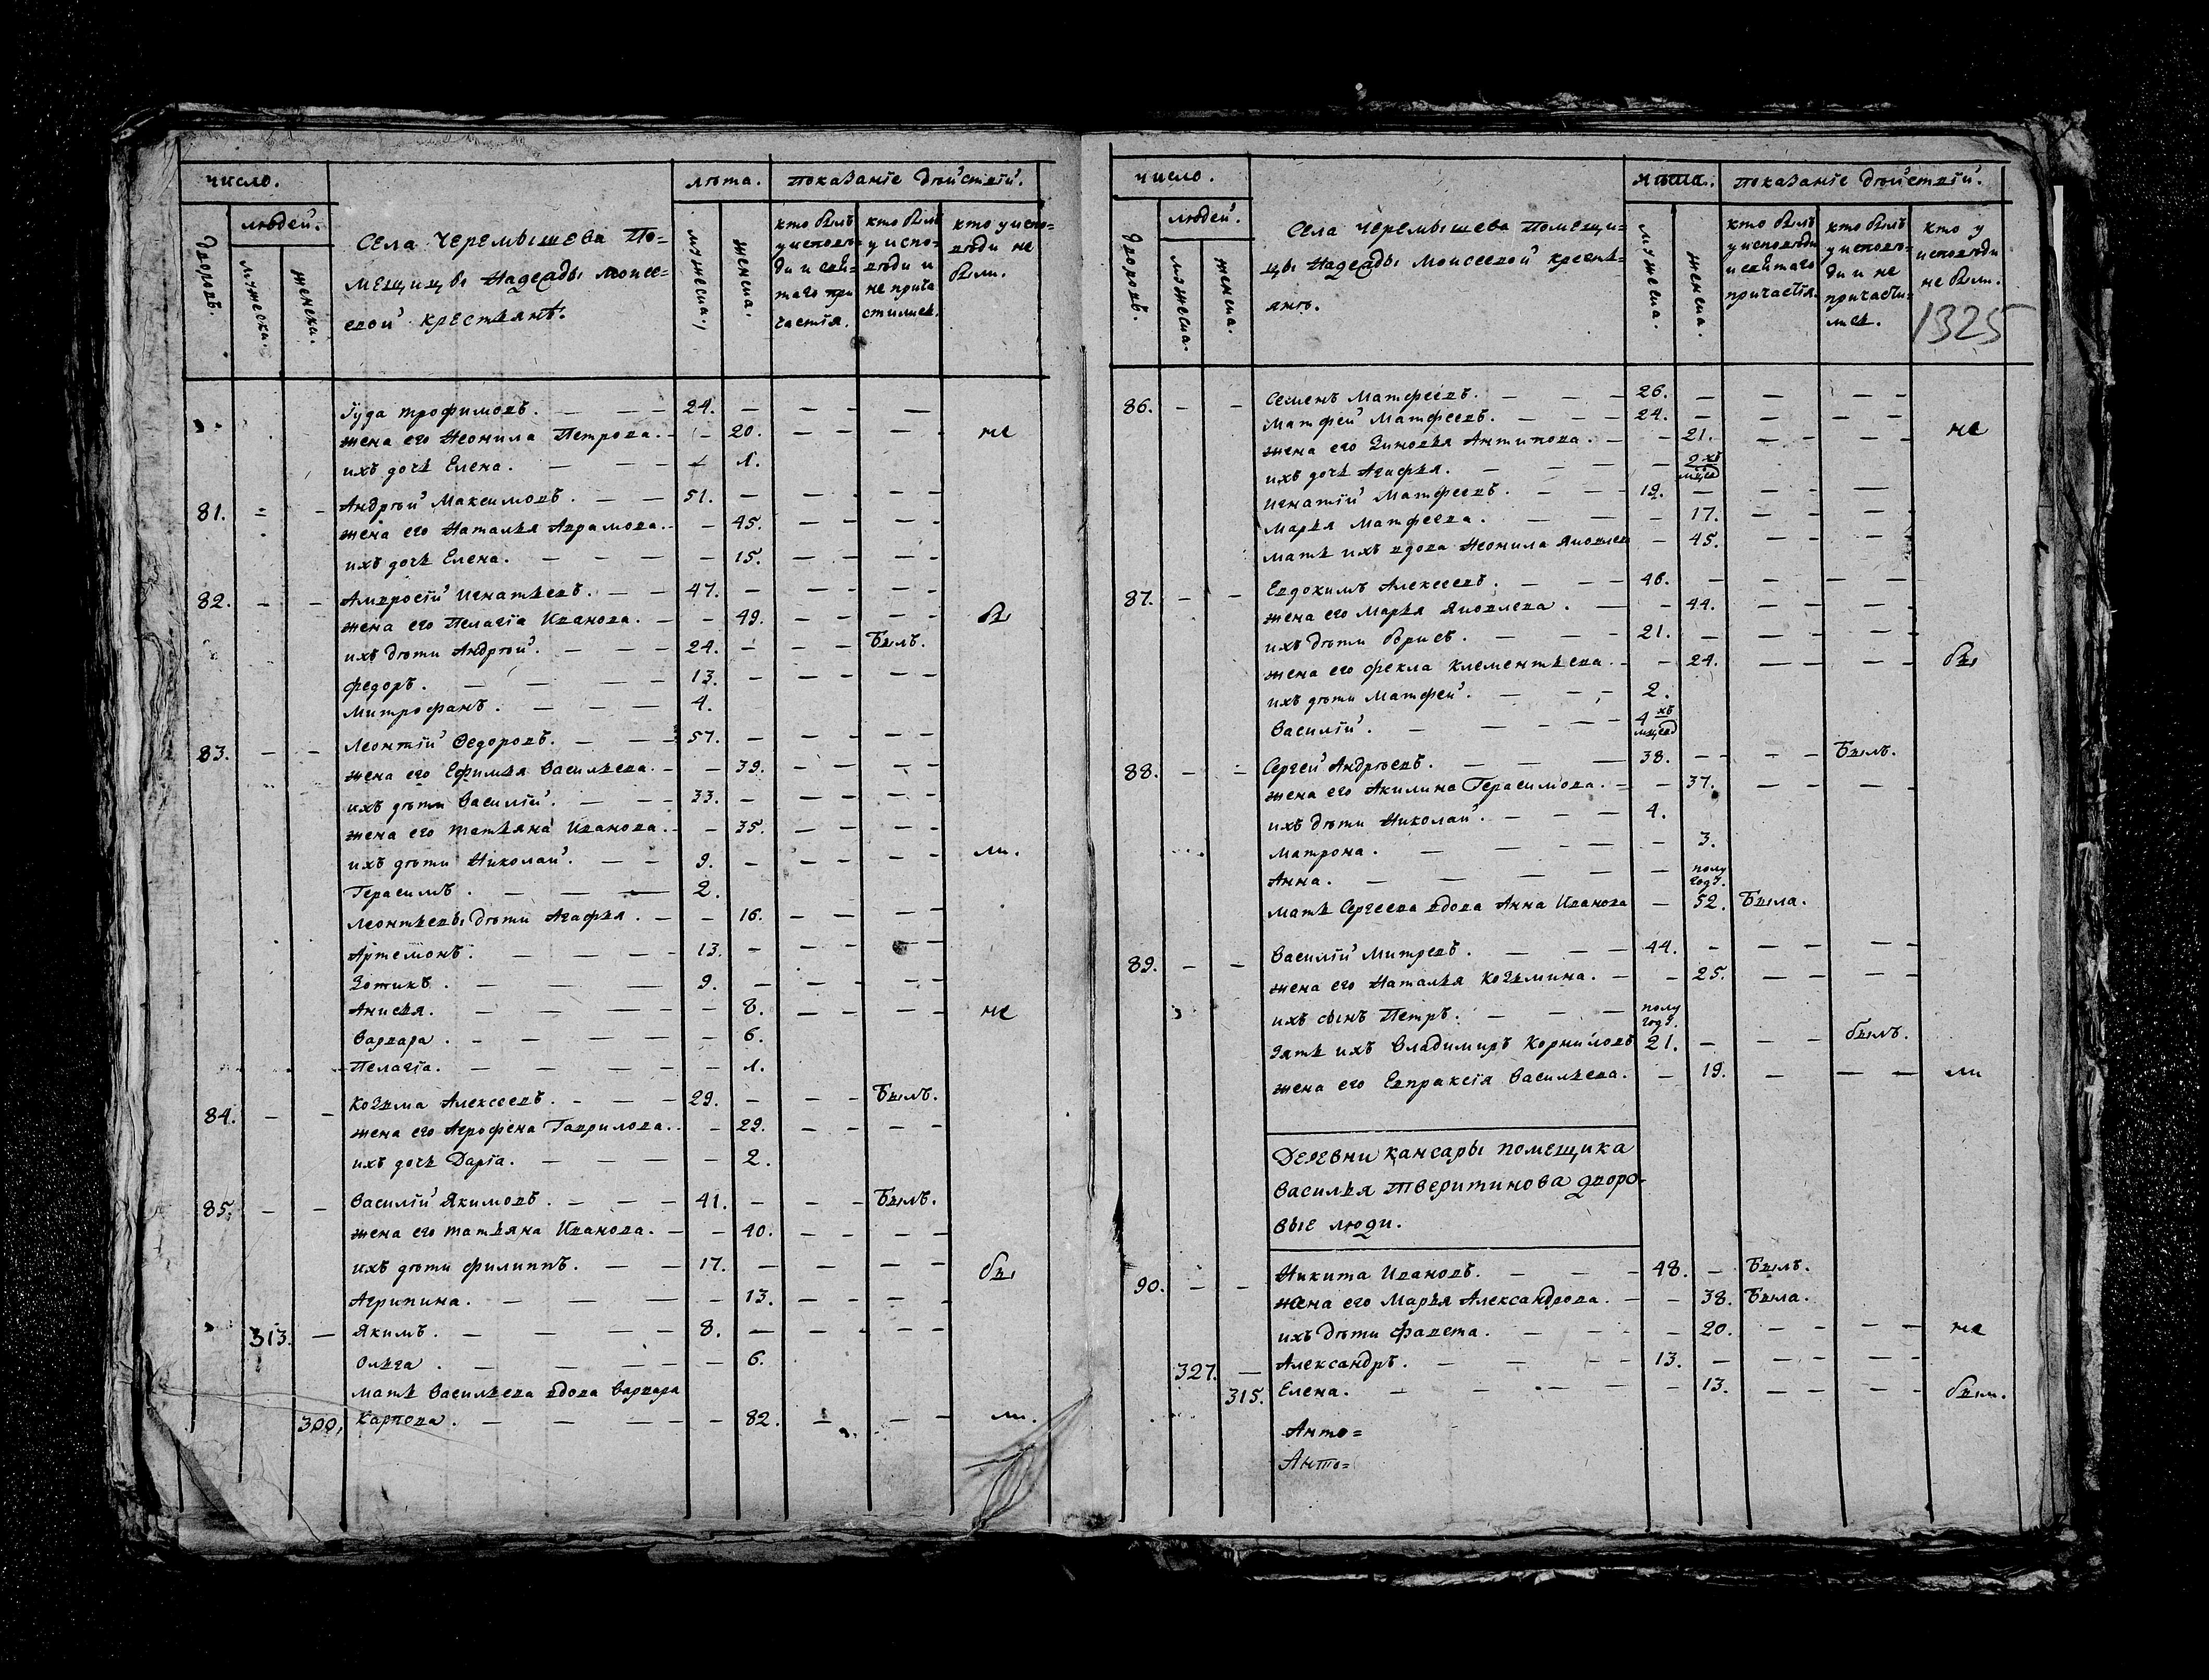 число.
людей.
дворовъ.
мужеска.
женска.
Села Черемышева По-
мещицы Надежды Моисе-
евой крестьянъ.
лѣта.
мужеска.
женска.
показанїе дѣйствїй.
кто былъ
у исповѣ-
ди и свя-
таго при
частїя.
кто былъ
у испо-
вѣди и
не прича
стились.
кто у испо-
вѣди не
были.
Іуда трофимовъ. 24.
жена его Неонила Петрова. 20. не
ихъ дочь Елена. 1.
81. Андрѣй Максимовъ. 51.
жена его Наталья Аврамова. 45.
ихъ дочь Елена. 15.
82. Амвросїй Игнатьевъ. 47.
жена его Пелагїа Иванова. 49. бы
ихъ дѣти Андрѣй. 24. Былъ.
Федоръ. 13.
Митрофанъ. 4.
83. Леонтїй Ѳедоровъ. 57.
жена его Ефимья Васильева. 39.
ихъ дѣти Василїй. 33.
жена его татьяна Иванова. 35.
ихъ дѣти Николай. 9. ли.
Герасимъ. 2.
Леонтьевы дѣти Агафья. 16.
Артемонъ. 13.
Зотикъ. 9.
Анисья. 8. не
Варвара. 6.
Пелагїа. 1.
84. Козьма Алексеевъ. 29. Былъ.
жена его Агрофена Гаврилова. 29.
ихъ дочь Дарїа. 2.
85. Василїй Якимовъ. 41. Былъ.
жена его татьяна Иванова. 40.
ихъ дѣти Филиппъ. 17. бы
Агрипина. 13.
313. Якимъ. 8.
Ольга. 6.
мать Васильева вдова Варвара
300. Карпова. 82. ли.
число.
людей.
дворовъ.
мужеска.
женска.
Села Черемышева Помещи-
цы Надежды Моисеевой кресть-
янъ.
лѣта.
мужеска.
женска.
показанїе дѣйствїй.
кто былъ
у исповѣди
и святаго
причастїя.
кто былъ
у исповѣ-
ди и не
причасти-
лись.
кто у
исповѣди
не были.
1325
86. Семенъ Матфеевъ. 26.
Матфей Матфеевъ. 24.
жена его Зиновья Антипова. 21. не
ихъ дочь Агафья. 2 хъ мцев
Игнатїй Матфеевъ. 19.
Марья Матфеева. 17.
мать ихъ вдова Неонила Яковлев 45.
87. Евдокимъ Алексеевъ. 46.
жена его Марья Яковлева. 44.
ихъ дѣти Борисъ. 21.
жена его Фекла Клементьева. 24. бы
ихъ дѣти Матфей. 2.
Василїй. 4 хъ мцев
88. Сергей Андрѣевъ. 38. Былъ.
жена его Акилина Герасимова. 37.
ихъ дѣти Николай. 4.
Матрона. 3.
Анна. полу году.
мать Сергеева вдова Анна Иванова 52. Была.
89. Василїй Митревъ. 44.
жена его Наталья Козьмина. 25.
ихъ сынъ Петръ. полу году.
Зять ихъ Владимиръ Корниловъ 21. былъ.
жена его Евпраксїя Васильева. 19. ли
Деревни Кансары помещика
Василья Тверитинова дворо-
вые люди.
90. Никита Ивановъ. 48. Былъ.
жена его Марья Александрова. 38. Была.
ихъ дѣти Фавста. 20. не
327. Александръ. 13.
315. Елена. 13. были.
Анто=
Анто=